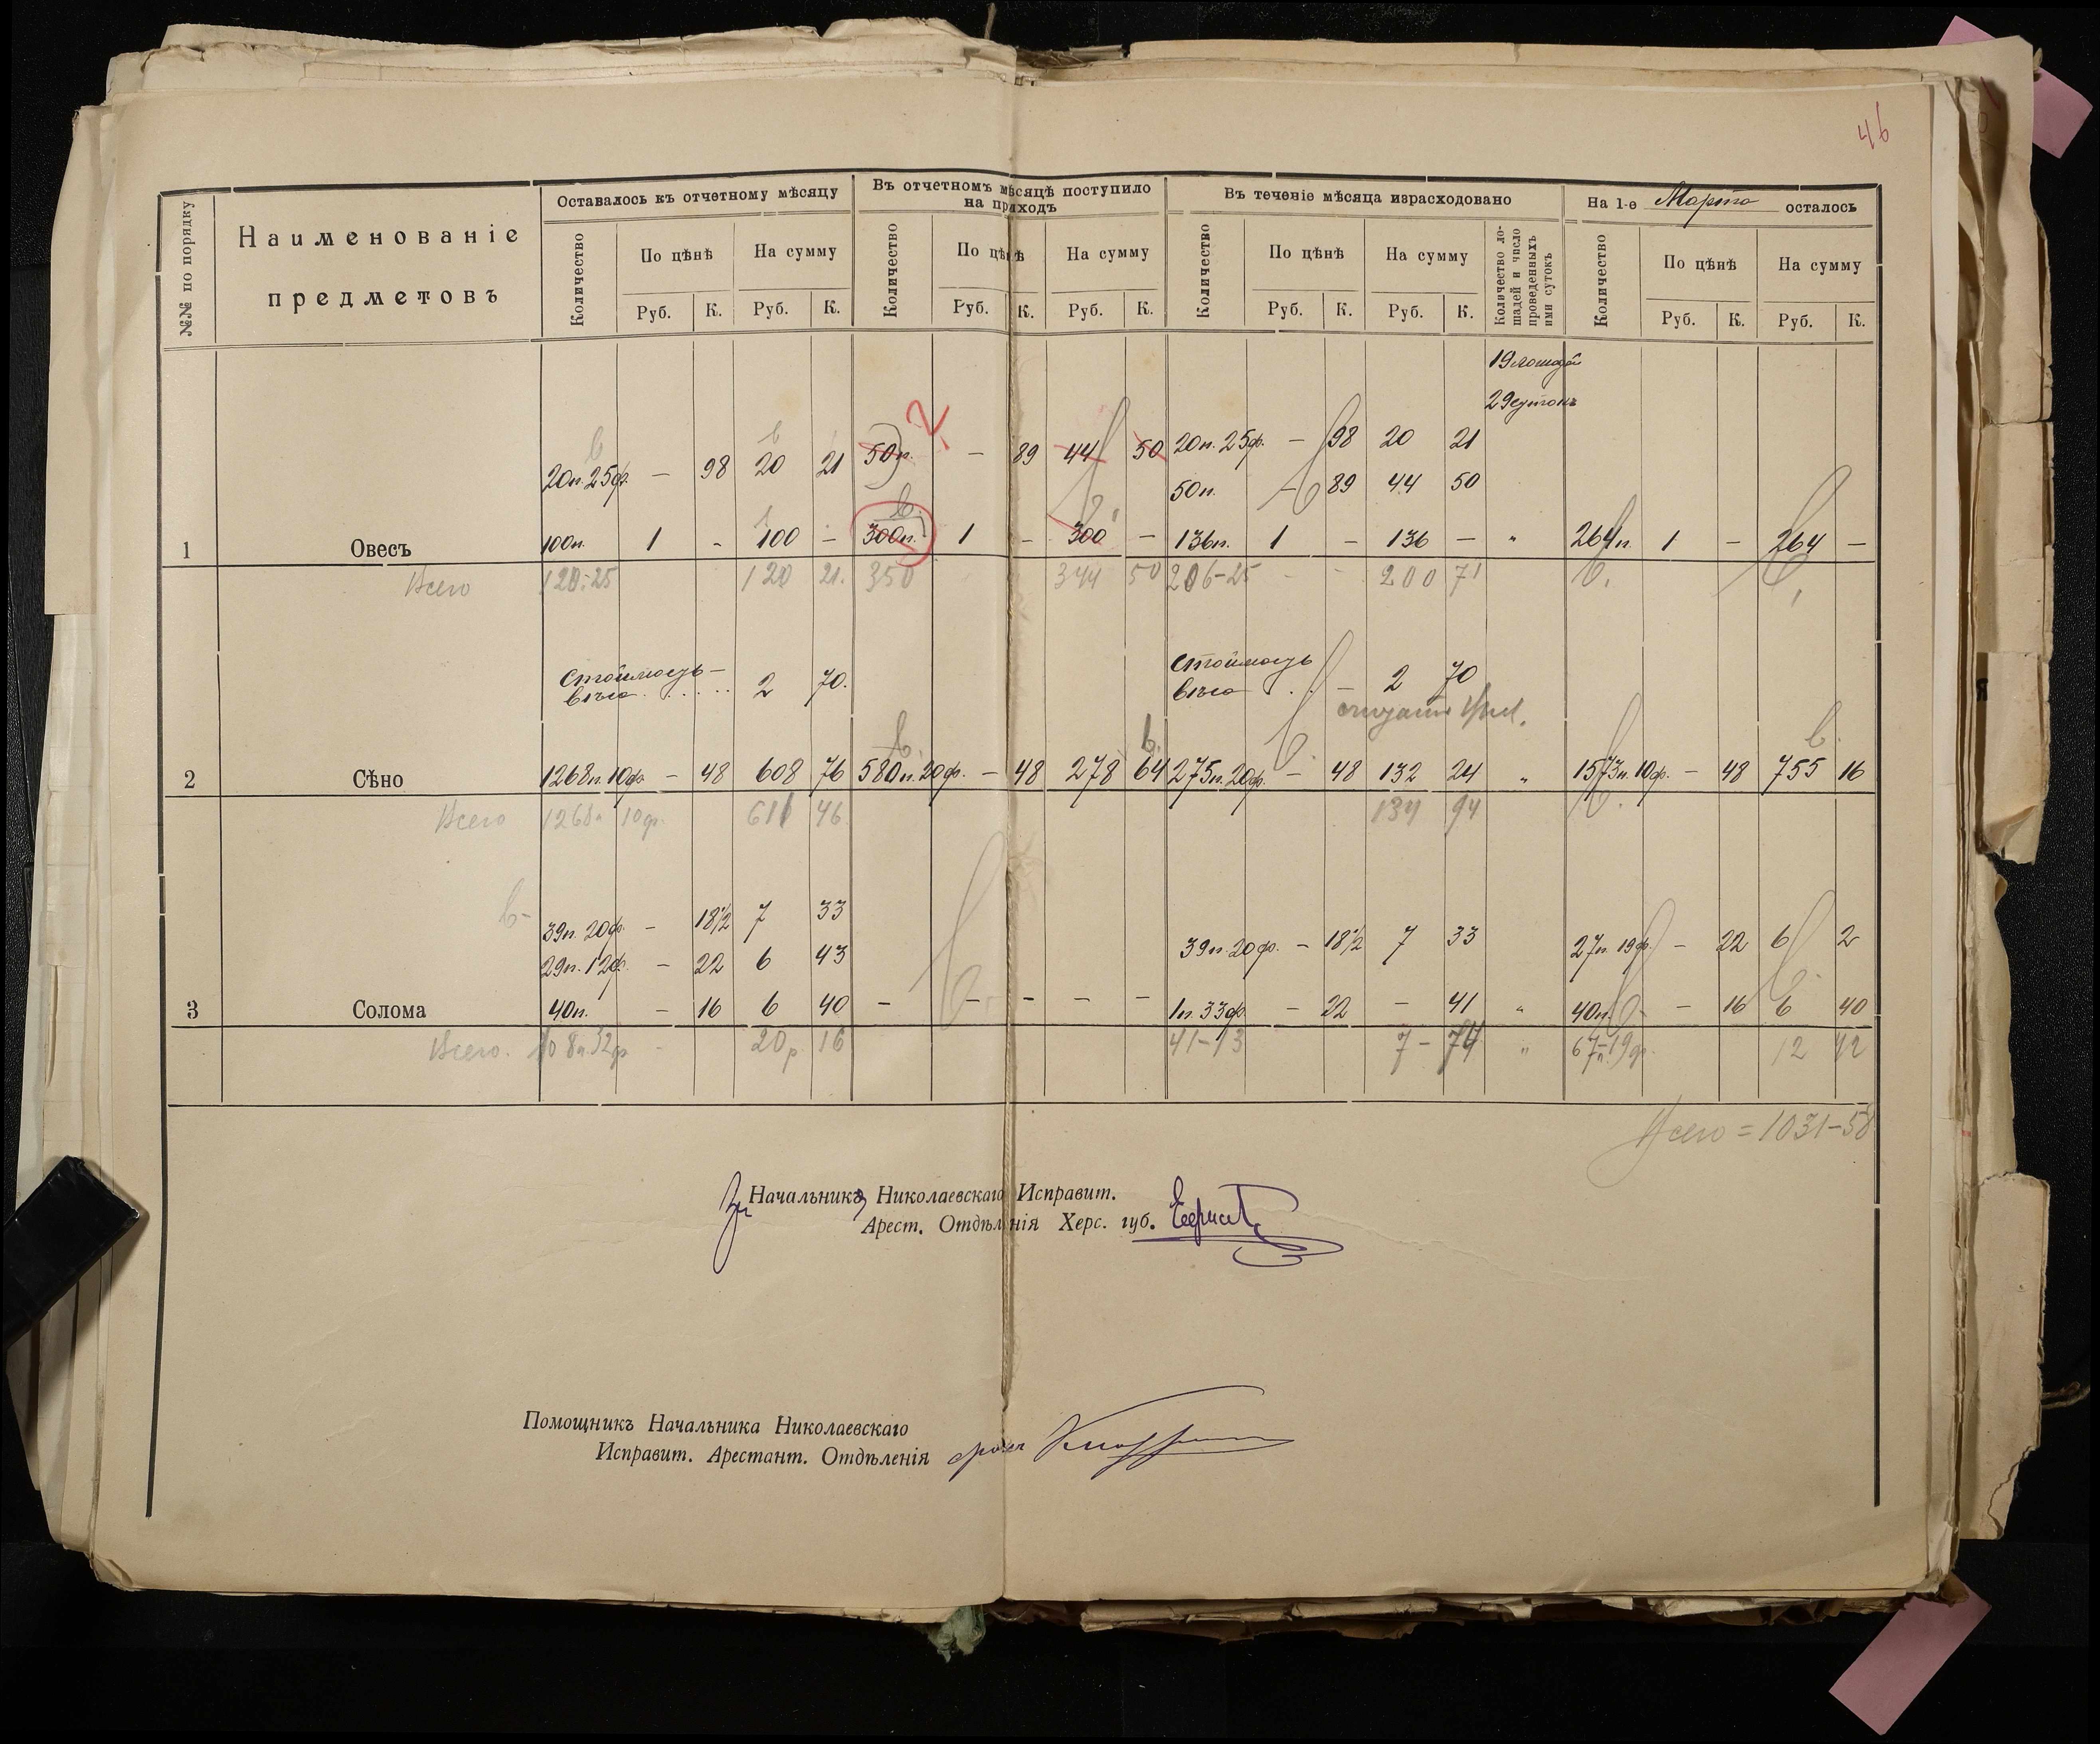 46
№№ по порядку
Наименованіе предметовъ
Оставалось къ отчетному мѣсяцу
Въ отчетномъ мѣсяцѣ поступило на приходъ
Въ теченіе мѣсяца израсходовано
На 1-е Марта осталось
Количество По цѣнѣ На сумму Количество По цѣнѣ На сумму Количество По цѣнѣ На сумму Количество лошадей и число проведенныхъ ими сутокъ Количество По цѣнѣ На сумму
Руб. К. Руб. К. Руб. К. Руб. К. Руб. К. Руб. К. Руб. К. Руб. К.
19 лошадей
29 сутокъ
20п. 25ф. — 98 20 21 50п. — 89 44 50 20п. 25ф. — 98 20 21
50п. — 89 44 50
1 Овесъ 100п. 1 - 100 — 300п. 1 — 300 — 136п. 1 — 136 — " 264п. 1 — 264 —
Всего 120:25 120 21. 350 344 50 206-25 - - 200 71
Стоимость — 2 70.
Стоимость — 2 70
2 Сѣно 1268п. 10ф. — 48 608 76 580п. 20ф. — 48 278 64 275п. 20ф. — 48 132 24 " 1573п. 10ф. — 48 755 16
Всего 1268п 10ф. 611 46. 134 94
39п. 20ф. — 18 1/2 7 33 39п. 20ф. — 18 1/2 7 33 27п. 19ф. — 22 6 2
29п. 12ф. — 22 6 43
3 Солома 40п. — 16 6 40 — — — — — 1п. 33ф. — 22 — 41 " 40п. — 16 6 40
Всего. 108п. 32ф - 20р. 16 41-13 7 - 74 " 67п. 19ф. 12 42
Всего = 1031-58
За Начальника Николаевскаго Исправит.
Арест. Отдѣленія Херс. губ.
Помощникъ Начальника Николаевскаго
Исправит. Арестант. Отдѣленія